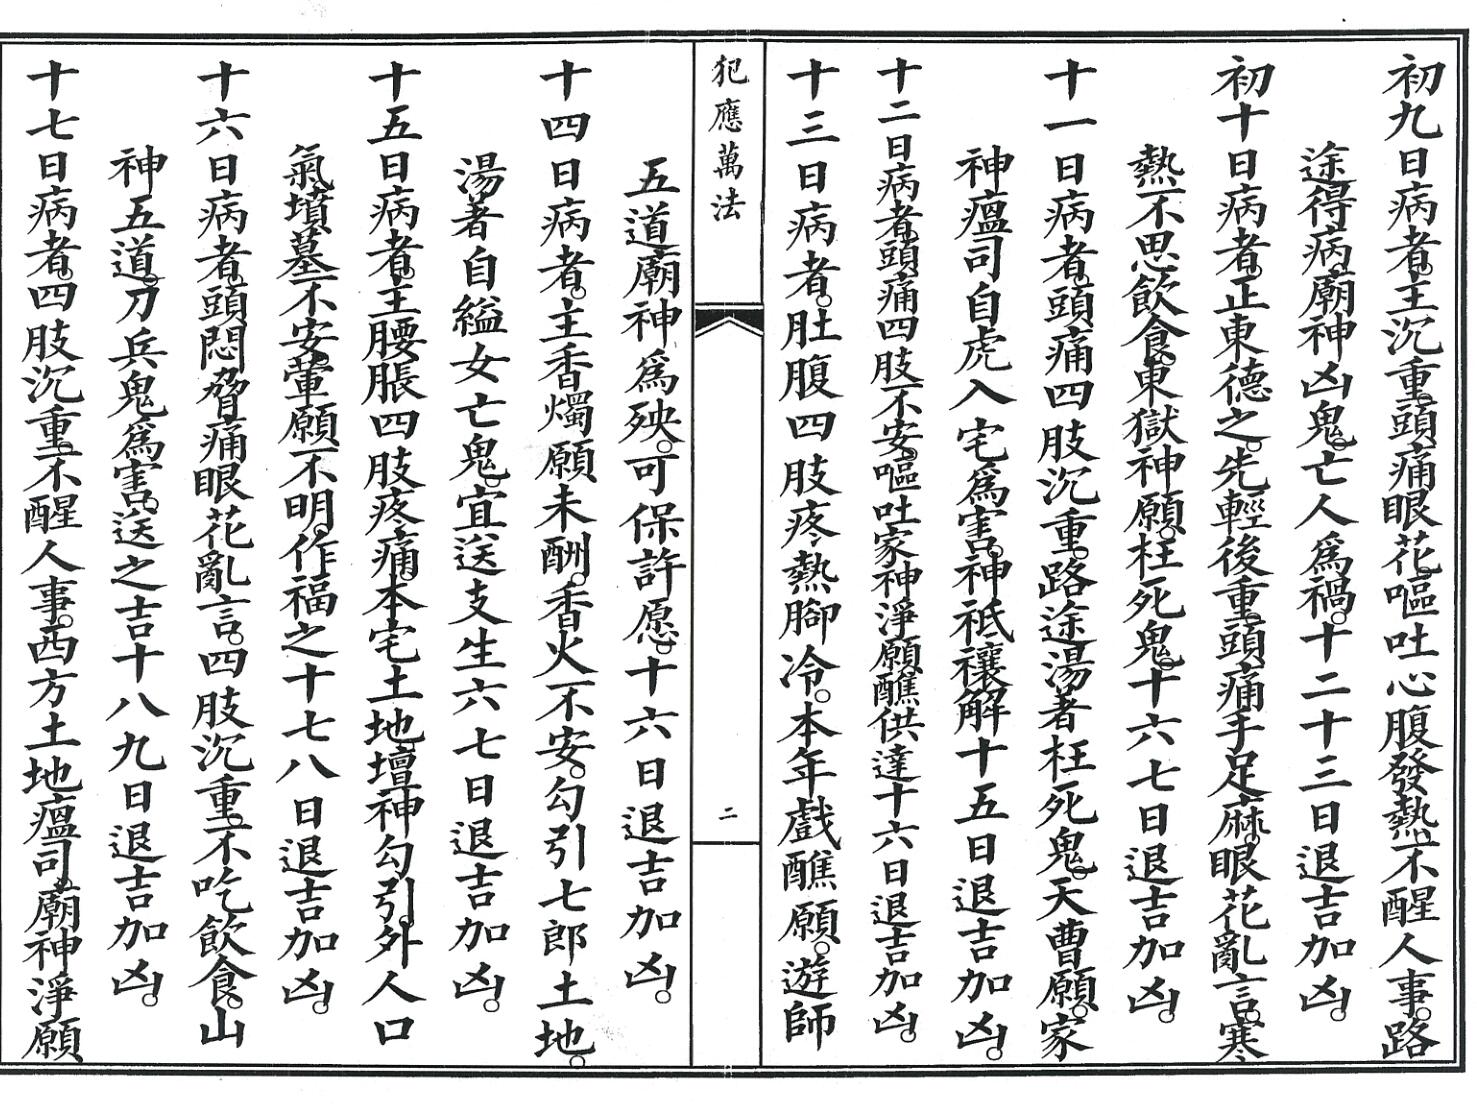 初九日病者。主沉重。頭痛眼花。嘔吐心腹發熱。不醒人事。路
途得病。廟神凶鬼。亡人爲禍。十二十三日退吉加凶。
初十日病者。正東德之。先輕後重。頭痛手足麻。眼花亂言。寒
熱不思飲食。東獄神願。枉死鬼。十六七日退吉加凶。
十一日病者。頭痛四肢沉重。路途湯著枉死鬼。天曹願。家
神瘟司自虎入宅爲害。神祇禳解十五日退吉加凶。
十二日病者。頭痛四肢不安。嘔吐家神淨願醮供達十六日退吉加凶。
十三日病者。肚腹四肢疼熱腳冷。本年戲醮願。遊師
犯應萬法
二
五道廟神爲殃。可保許愿。十六日退吉加凶。
十四日病者。主香燭願未酬。香火不安。勾引七郎土地。
湯著自縊女亡鬼。宜送支生六七日退吉加凶。
十五日病者。主腰脹四肢疼痛。本宅土地。壇神勾引。外人口
氣墳墓不安。葷願不明。作福之十七八日退吉加凶。
十六日病者。頭悶脅痛眼花亂言。四肢沉重。不吃飲食。山
神五道。刀兵鬼爲害。送之吉十八九日退吉加凶。
十七日病者。四肢沉重。不醒人事。西方土地瘟司。廟神淨願